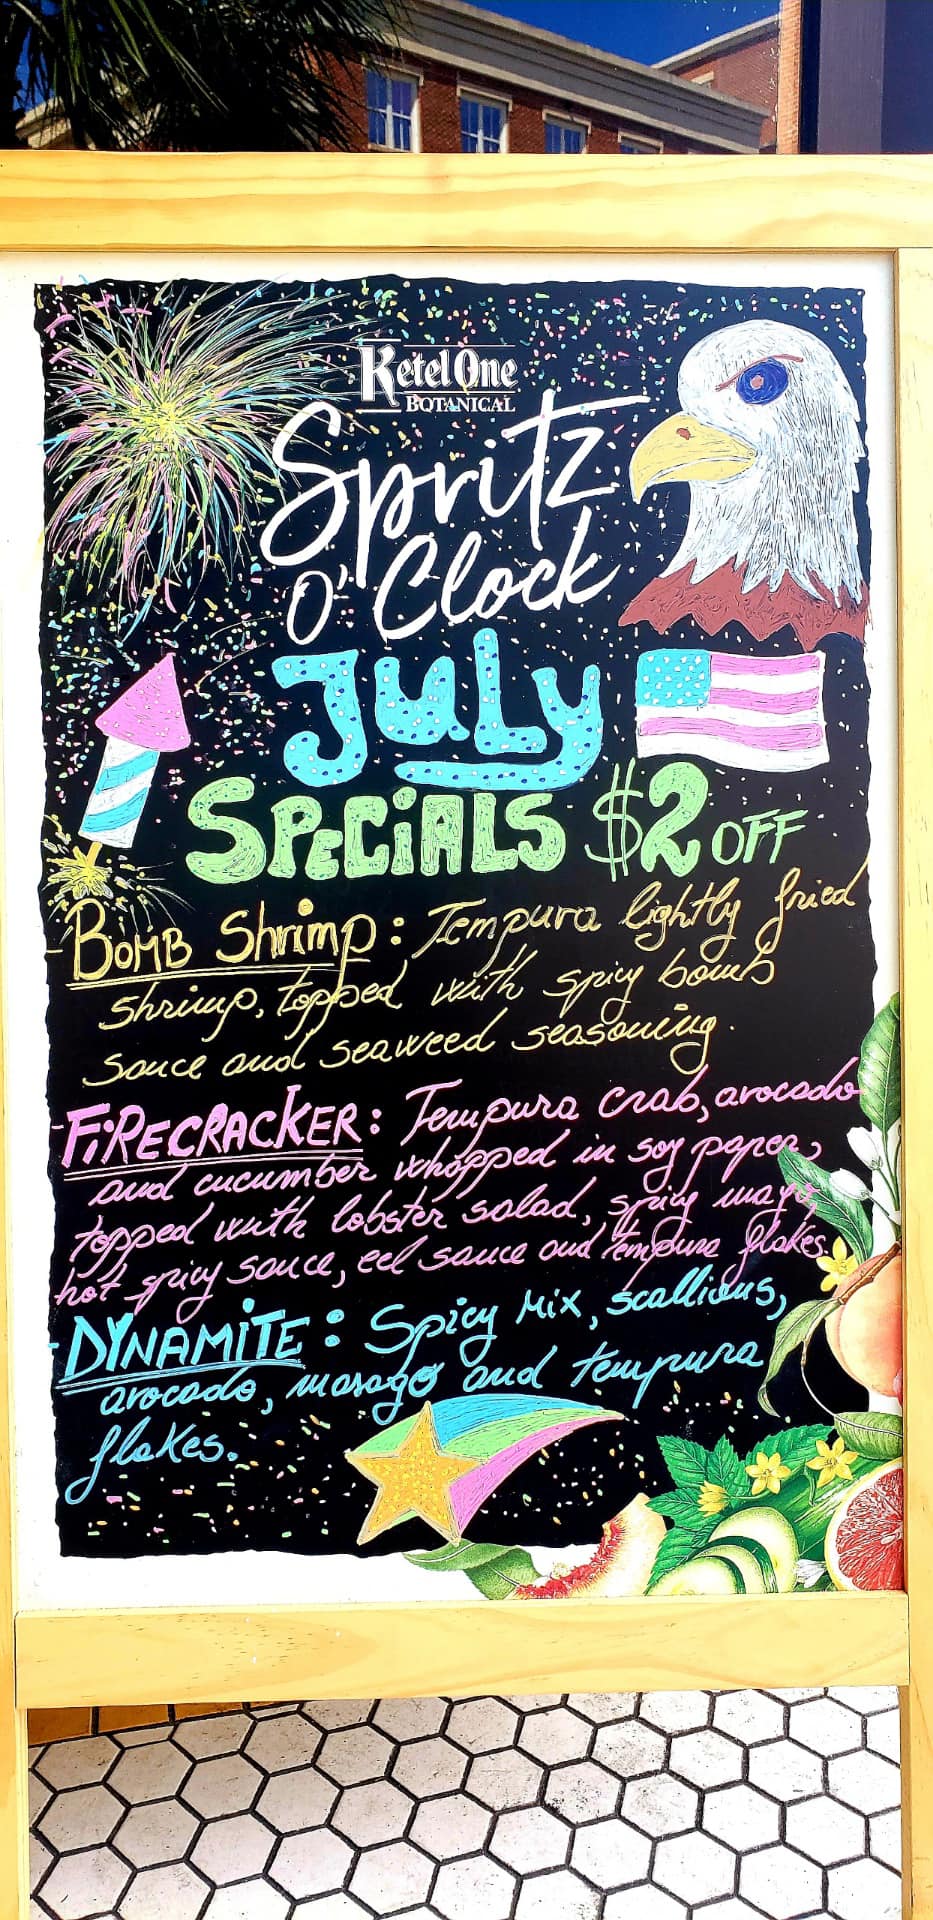 Ketel One
BOTANICAL
Spritz
O'Clock
JULY
SPECIALS $2 OFF
- BOMB Shrimp: Tempura lightly fried
shrimp, topped with spicy bomb
sauce and seaweed seasoning.
- FiRECRACKER: Tempura crab, avocado
and cucumber whapped in soy paper,
topped with lobster salad, spicy mayo,
hot spicy sauce, eel sauce and tempura flakes.
- DYNAMiTE: Spicy Mix, scallions,
avocado, masago and tempura
flakes.